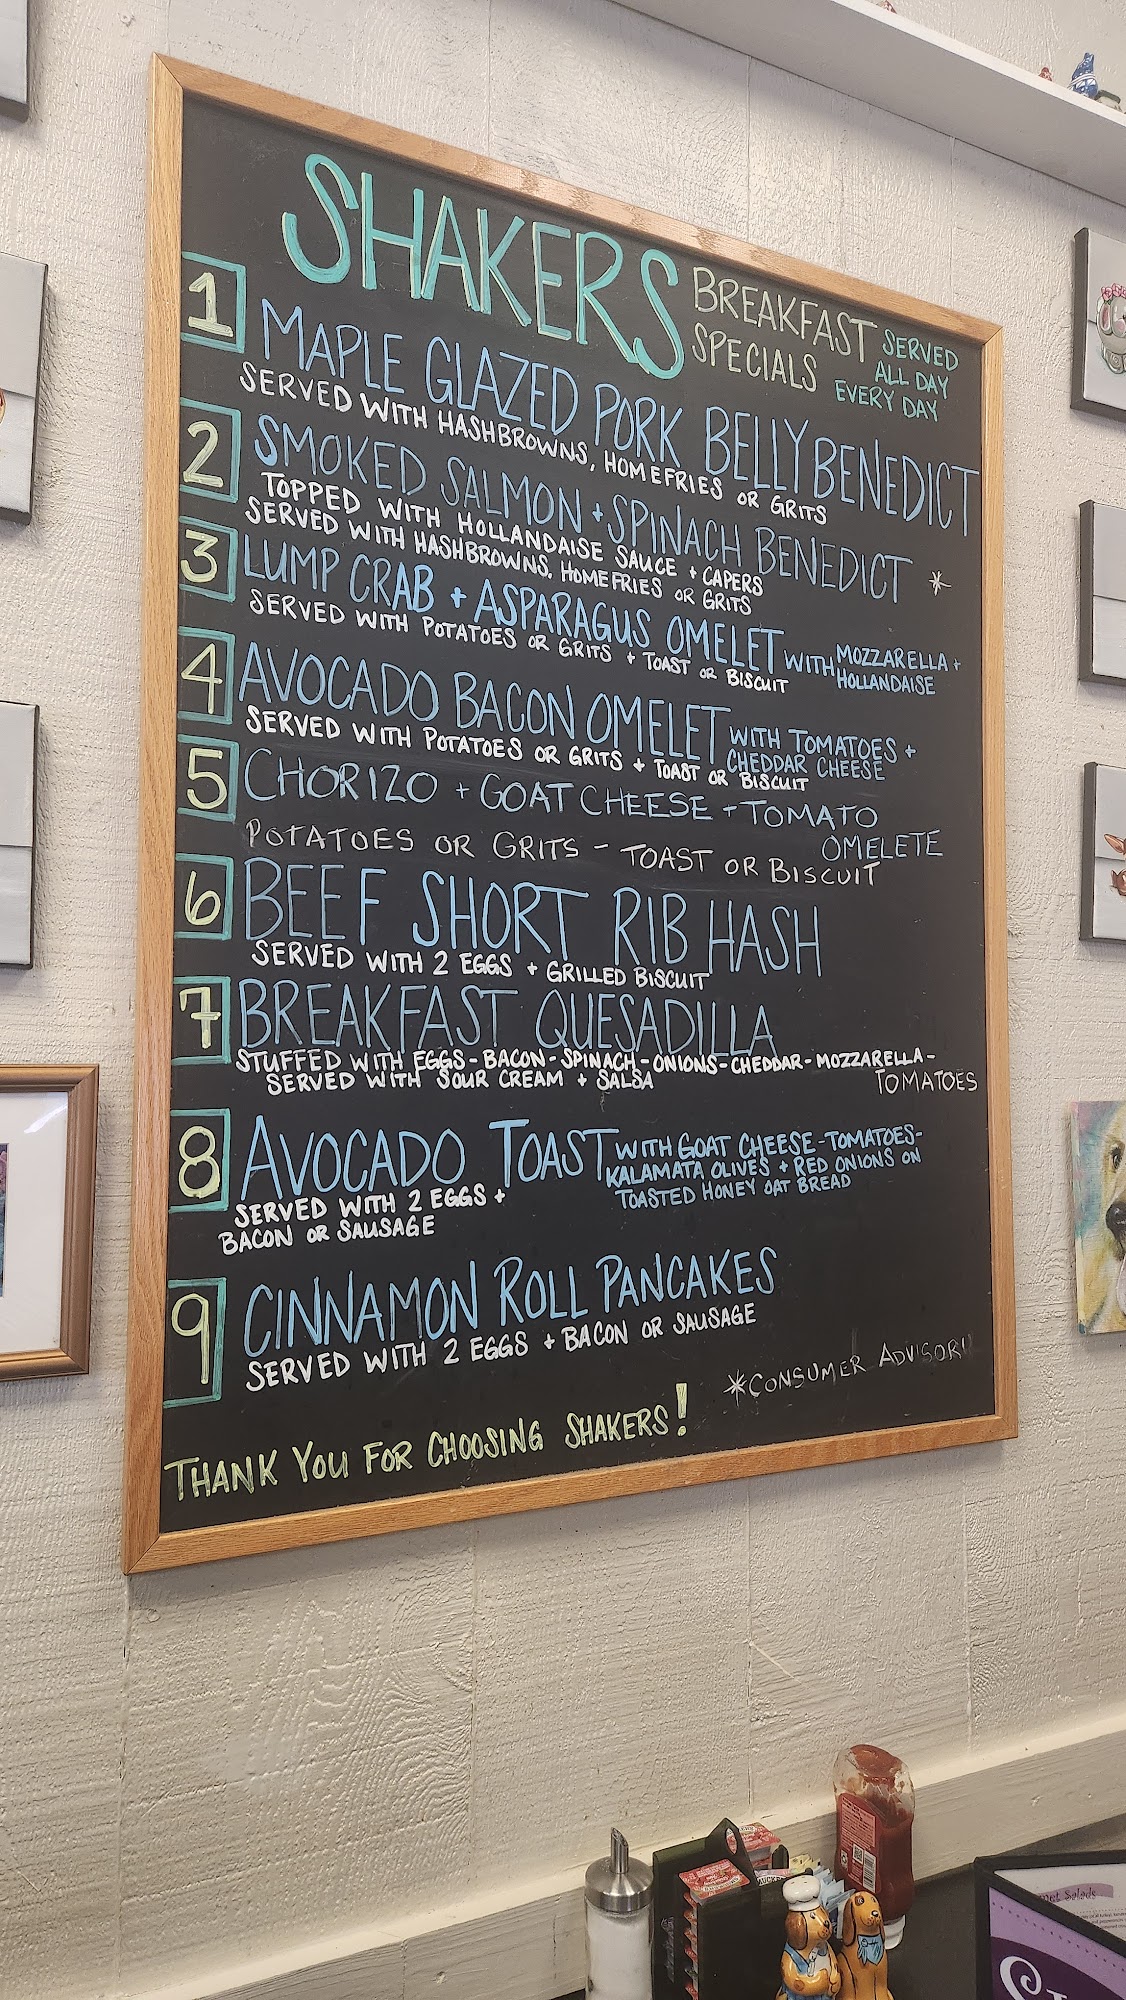 SHAKERS
BREAKFAST
SPECIALS
SERVED
ALL DAY
EVERY DAY
1 MAPLE GLAZED PORK BELLY BENEDICT
SERVED WITH HASHBROWNS, HOMEFRIES OR GRITS
2 SMOKED SALMON + SPINACH BENEDICT *
TOPPED WITH HOLLANDAISE SAUCE + CAPERS
SERVED WITH HASHBROWNS, HOMEFRIES OR GRITS
3 LUMP CRAB + ASPARAGUS OMELET WITH MOZZARELLA +
HOLLANDAISE
SERVED WITH POTATOES OR GRITS + TOAST OR BISCUIT
4 AVOCADO BACON OMELET WITH TOMATOES +
CHEDDAR CHEESE
SERVED WITH POTATOES OR GRITS + TOAST OR BISCUIT
5 CHORIZO + GOAT CHEESE + TOMATO
OMELETE
POTATOES OR GRITS - TOAST OR BISCUIT
6 BEEF SHORT RIB HASH
SERVED WITH 2 EGGS + GRILLED BISCUIT
7 BREAKFAST QUESADILLA
STUFFED WITH EGGS - BACON - SPINACH - ONIONS - CHEDDAR - MOZZARELLA -
TOMATOES
SERVED WITH SOUR CREAM + SALSA
8 AVOCADO TOAST WITH GOAT CHEESE - TOMATOES -
KALAMATA OLIVES + RED ONIONS ON
TOASTED HONEY OAT BREAD
SERVED WITH 2 EGGS +
BACON OR SAUSAGE
9 CINNAMON ROLL PANCAKES
SERVED WITH 2 EGGS + BACON OR SAUSAGE
*CONSUMER ADVISORY
THANK YOU FOR CHOOSING SHAKERS!
Salads